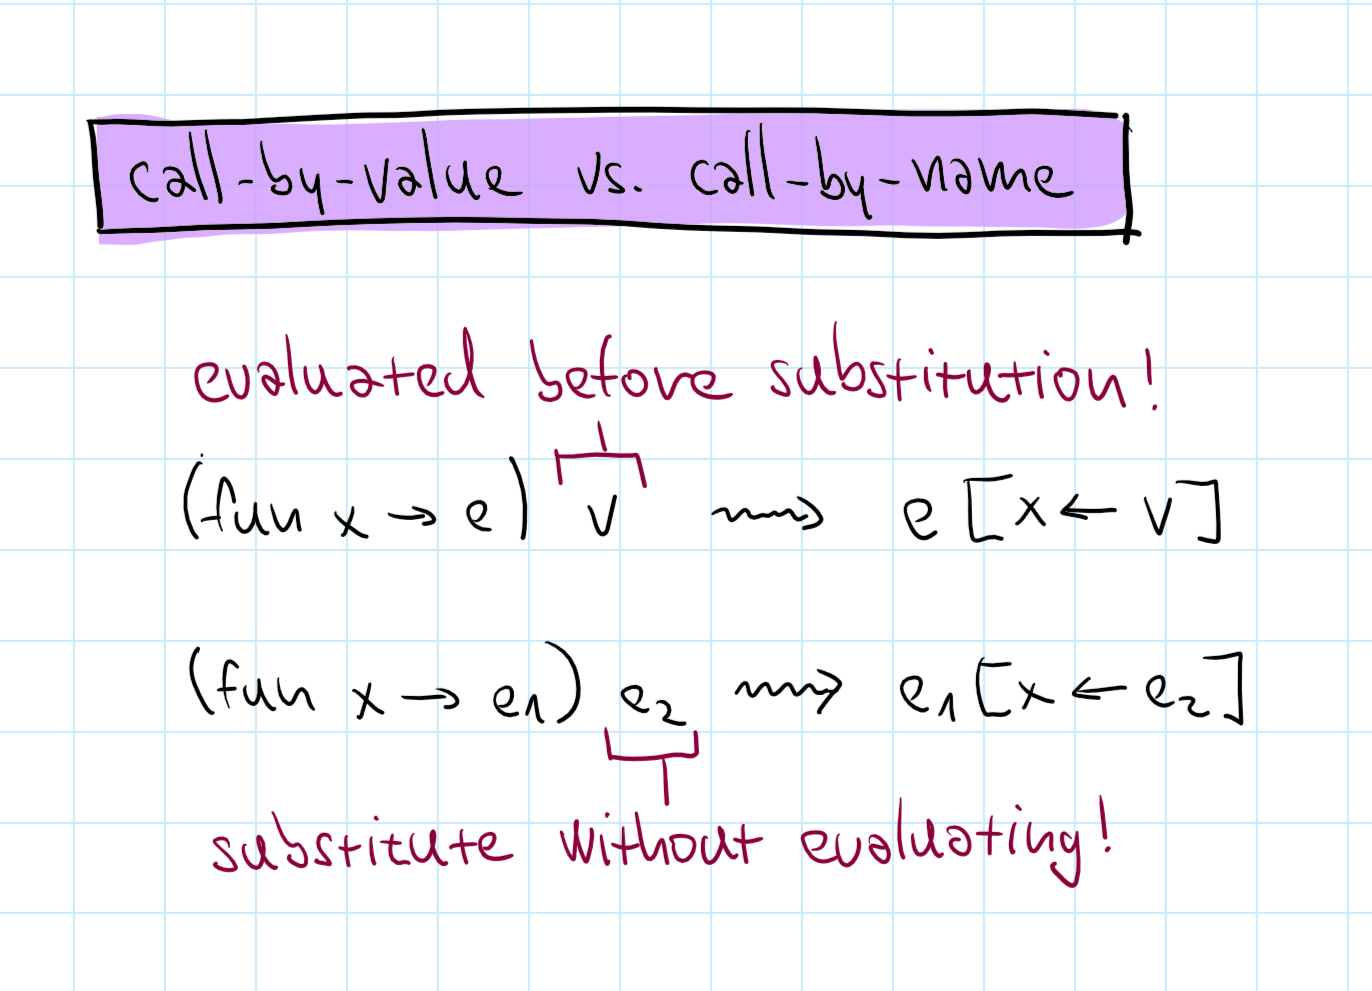 call-by-value vs. call-by-name
evaluated before substitution!
(fun x → e) v ⟿ e [x ← v]
(fun x → e₁) e₂ ⟿ e₁ [x ← e₂]
substitute without evaluating!